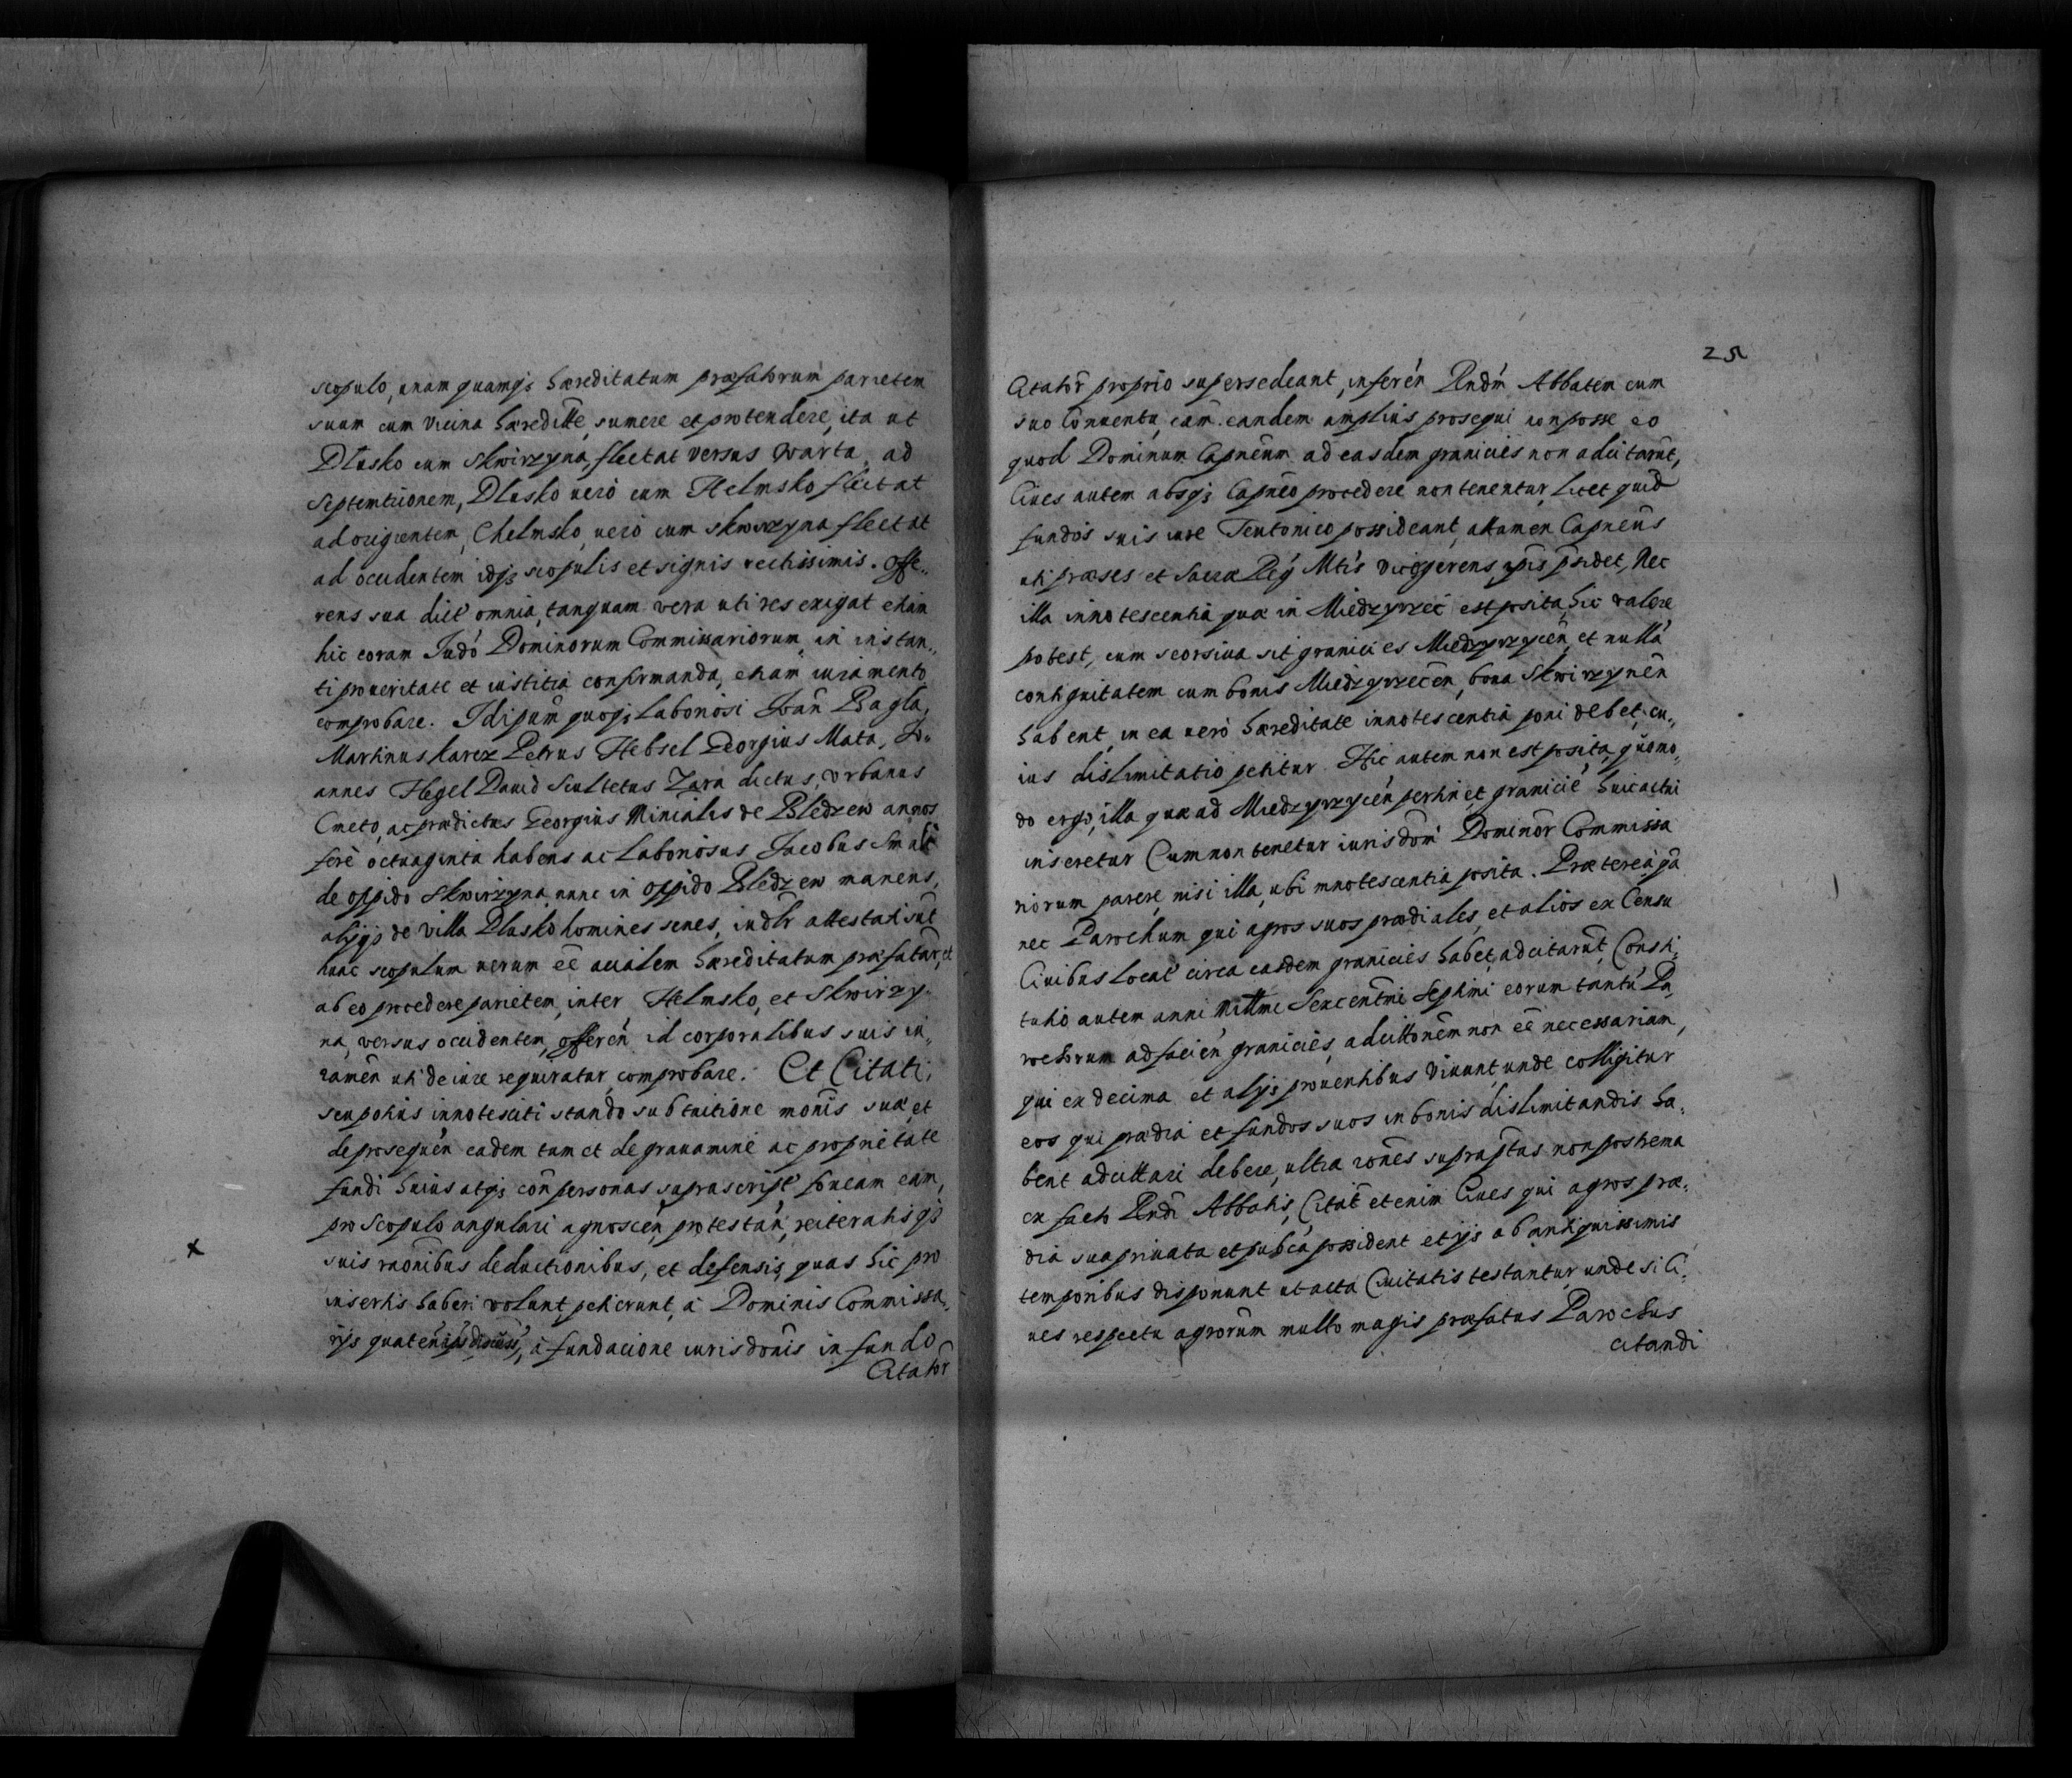 scopulo, unam quamq; hæreditatum præfatorum parietem
suum cum vicina hæreditte, sumere et protendere, ita ut
Dlusko cum Skwirzyna, flectat versus Warta, ad
Septemtrionem, Dlusko verò cum Helmsko flectat
ad origientem, Chelmsko, verò cum Skwirzyna flectat
ad occidentem idq; scopulis et signis rectissimis. Offe„
rens sua dict omnia, tanquam vera uti res exigat etiam
hic coram Judó Dominorum Commissariorum, in instan„
ti pro veritate et iustitia confirmanda, etiam iuramento
comprobare. Idipsum quoq; Laboriosi Joan̄ Bagla,
Martinus Karez Petrus Hebsel Georgius Mata, Jo„
annes Hegel David Scultetus Zara dictus, Urbanus
Cmeto, ac prædictus Georgius Minialis de Bledzew annos
ferè octuaginta habens ac Laboriosus Jacobus Smalt
de oppido Skwirzyna nunc in oppido Bledzew manens,
alijq; de villa Dlusko homines senes, iudlr attestati sūt
hunc scopulum verum eē acialem hæreditatum præfatar̄, et
ab eo procedere parietem, inter, Helmsko, et Skwirzy-
na, versus occidentem, offerēn id corporalibus suis iu„
ramēn uti de iure requiratur comprobare. Et Citati,
seu potius innotesciti stando sub tuitione mon̄is suæ, et
de prosequēn eadem tum et de gravamine ac proprietate
fundi huius atq; con̄ personas suprascript foveam eam,
pro Scopulo angulari agnoscēn, protestan̄, reiteratis q;
suis rāonibus deductionibus, et defensis, quas hic pro
insertis haberi volunt petierunt, à Dominis Commissa„
rijs quatēn à fundacione iurisdon̄is in fundo
Citator̄
25
Citator̄ proprio supersedeant, inferēn Rndm̄ Abbatem cum
suo Conventu, cām eandem amplius prosequi non posse eo
quod Dominum Capnēum ad easdem granicies non adcitarūt,
Cives autem absq; Capnēo procedere non tenentur, licet quid
fundos suis iure Teutonico possideant, attamen Capneūs
uti præses et Sacræ Reg̃ Mtis vicesgerens, ip̄is p̄sidet, Nec
illa innotescentia quæ in Miedzyrzec est posita, hic valere
potest, cum seorsiva sit granicies Miedzyrzycēn, et nullā
contiguitatem cum bonis Miedzyrzecēn, bona Skwirzynēn
habent, in ea verò hæreditate innotescentia poni debet, cu„
ius dislimitatio petitur. Hic autem non est posita, quomo„
do ergo, illa quæ ad Miedzyrzycēn pertinet granicie huic actui
insceretur Cum non tenetur iurisdom̄ Dominor̄ Commissa
riorum parere, nisi illa, ubi innotescentia posita. Præterea q̄a
nec Parochum qui agros suos prædiales, et alios ex Censu
Civibus locat circa easdem granicies habet, adcitarūt, Consti„
tutio autem anni Millmi Sexcentmi Septimi eorum tantū Pa„
rochorum ad faciēn granicies, adcittonēm non eē necessariam,
qui ex decima et alijs proventibus vivunt, unde colligitur
eos qui prædia et fundos suos in bonis dislimitandis ha„
bent adcittari debere, ultra rōnes suprap̄tas non postrema
ex facto Rndi Abbatis, Citat̄ etenim Cives qui agros, præ„
dia sua privata et publ̄ca possident et ijs ab antiquissimis
temporibus disponunt ut acta Civitatis testantur, unde si Ci„
ves respectu agrorum multo magis præfatus Parochus
citandi